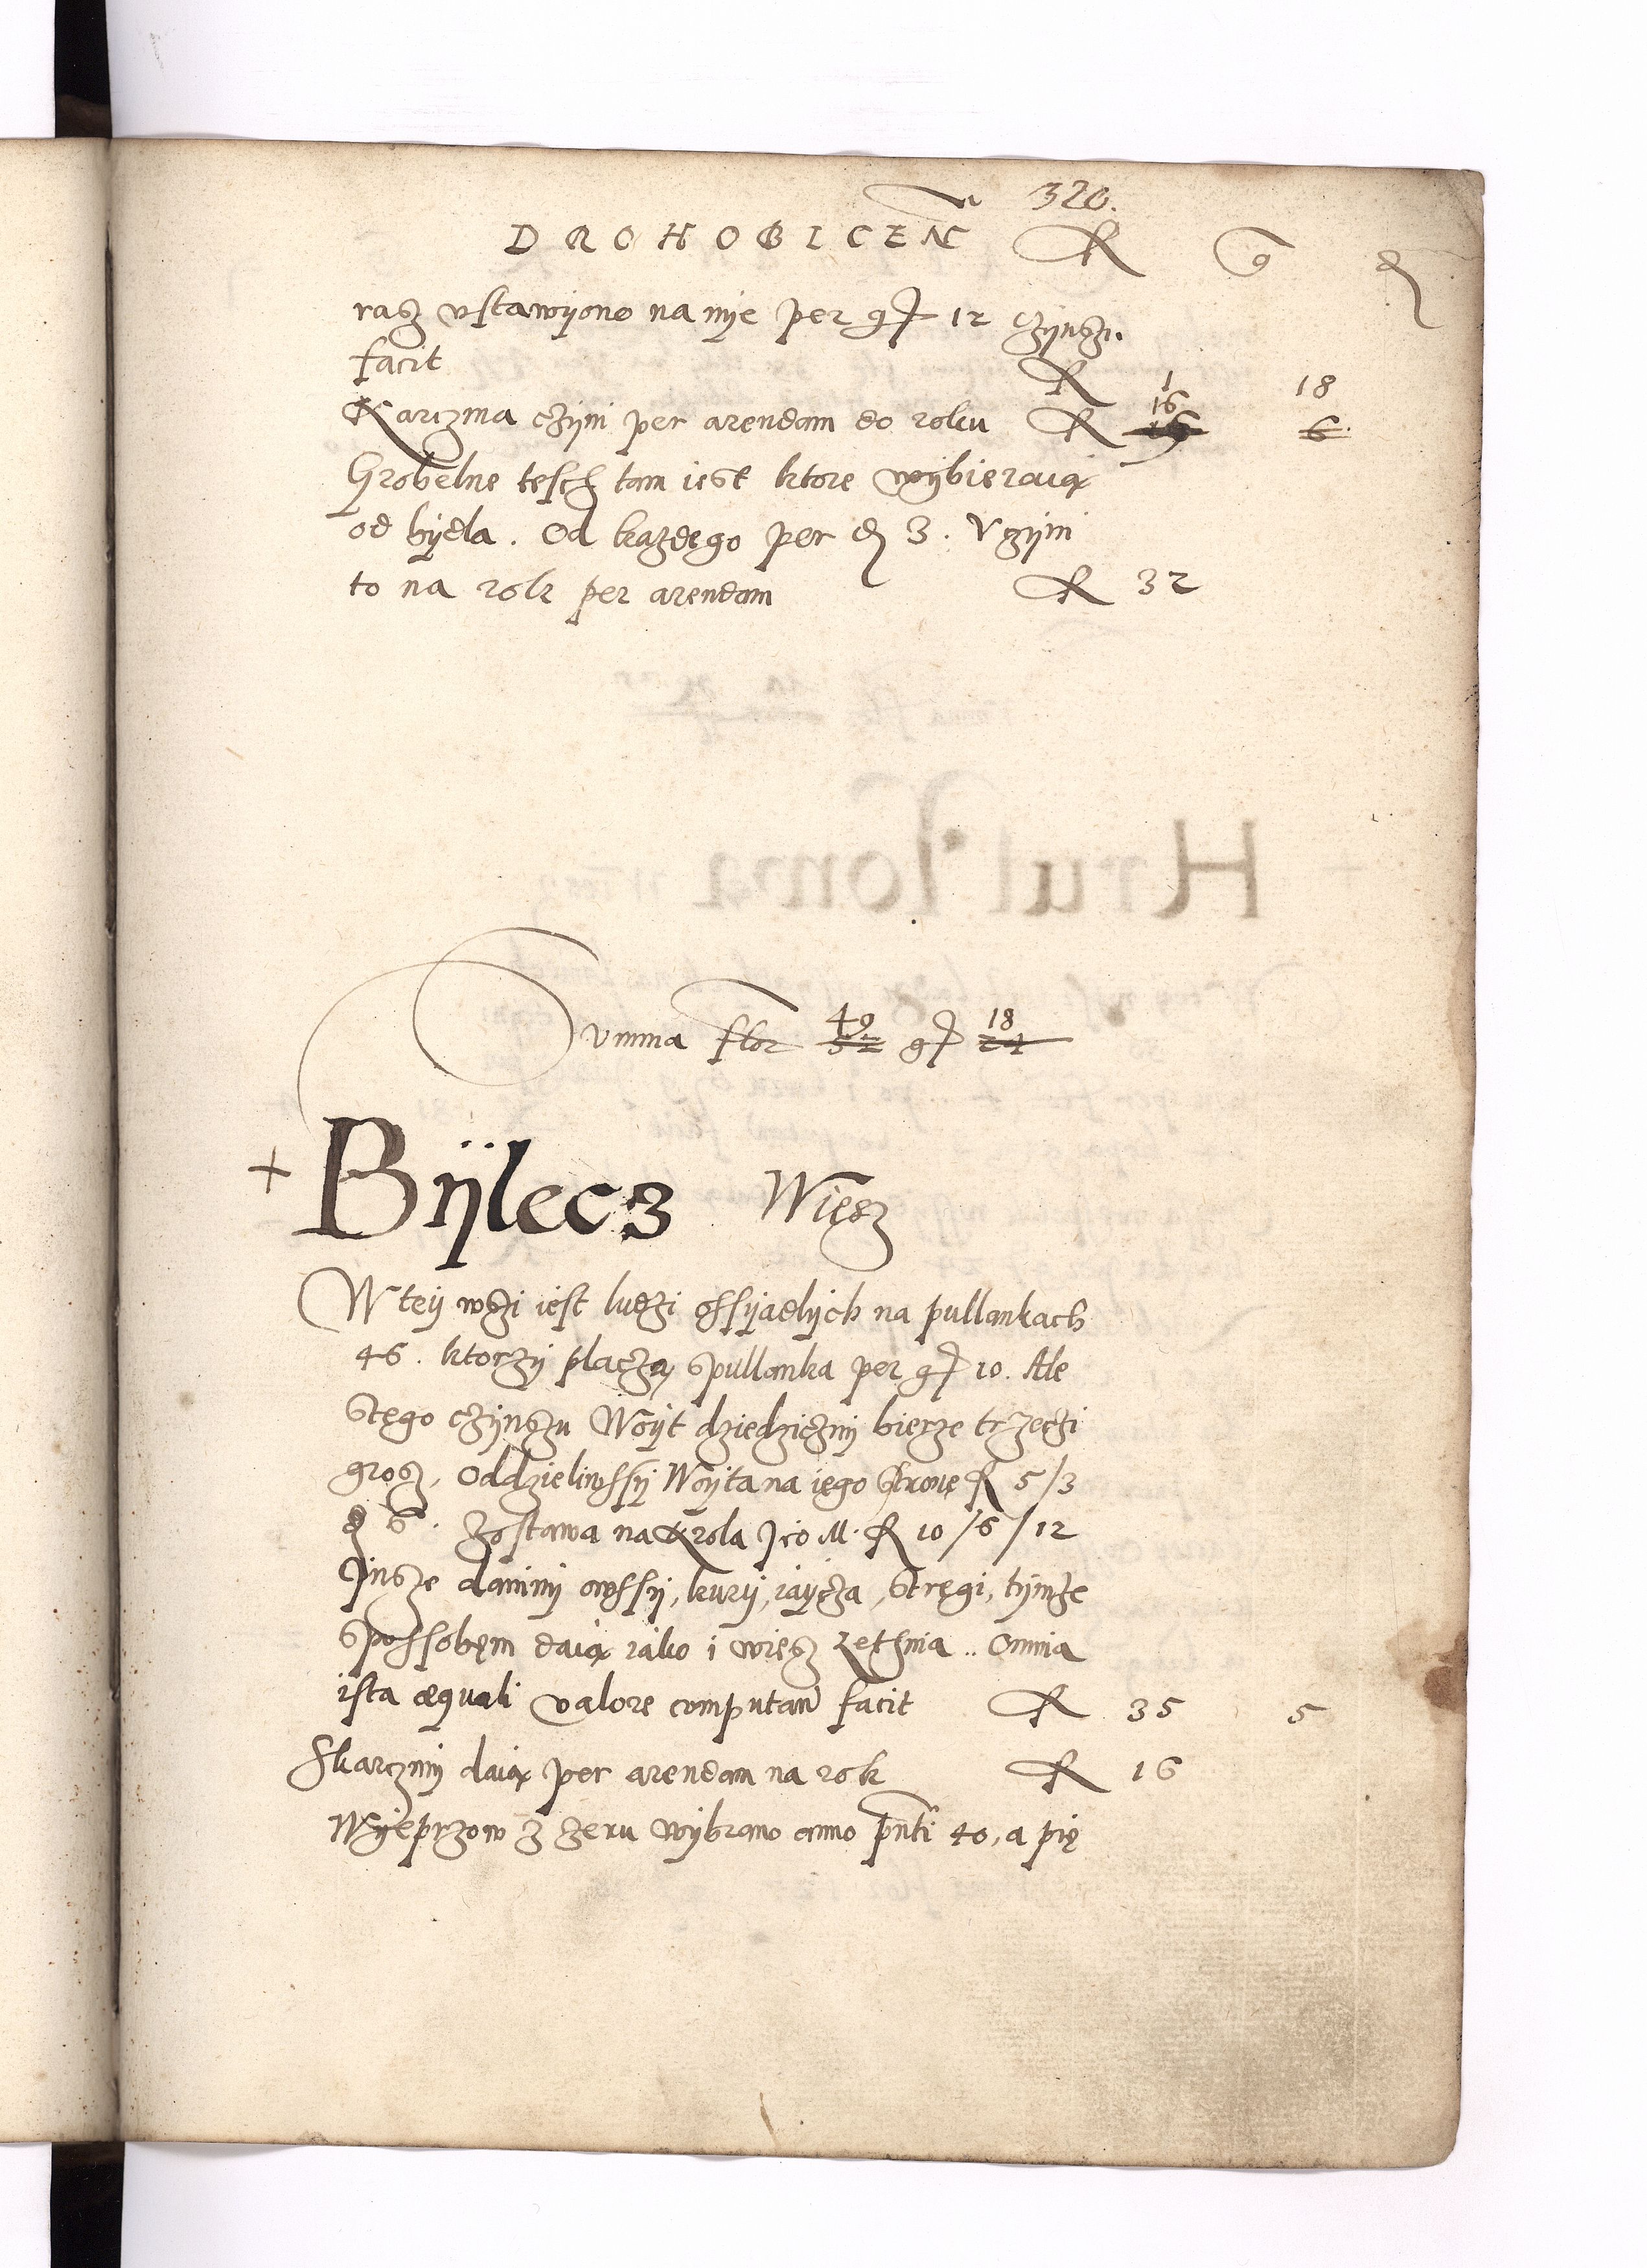 320.
DROHOBICEN̄ fl g d
rasz vstawyono na nye per gr 12 czynszu.
facit fl 1 18
Karczma czyni per arendam do roku fl 16 6
Grobelne tesch tam iest ktore wybieraią
od bydla. Od kazdego per d 3. Vczyni
to na rok per arendam fl 32
Summa flor 49 52 gr 18 24
+ Bÿlecz Wiesz
W tey wsi iest ludzi ossyadlych na pullankach
46. ktorzy placzą spullanka per gr 10. Ale
stego czynszu Woyt dziedziczny bierze trzeczi
grosz, Oddzieliwssy Woyta na iego strone fl 5/3
d 6. Zostawa na Krola Jeo M. fl 10/6/12
Jnsze daniny owssy, kury, iaycza, stregi, tymze
spossobem daią iako i wiesz Lethnia.. Omnia
ista æquali valore computan̄ facit fl 35 5
Skarczmy daią per arendam na rok fl 16
Wyeprzow z zeru wybrano anno pn̄ti 40, a pię